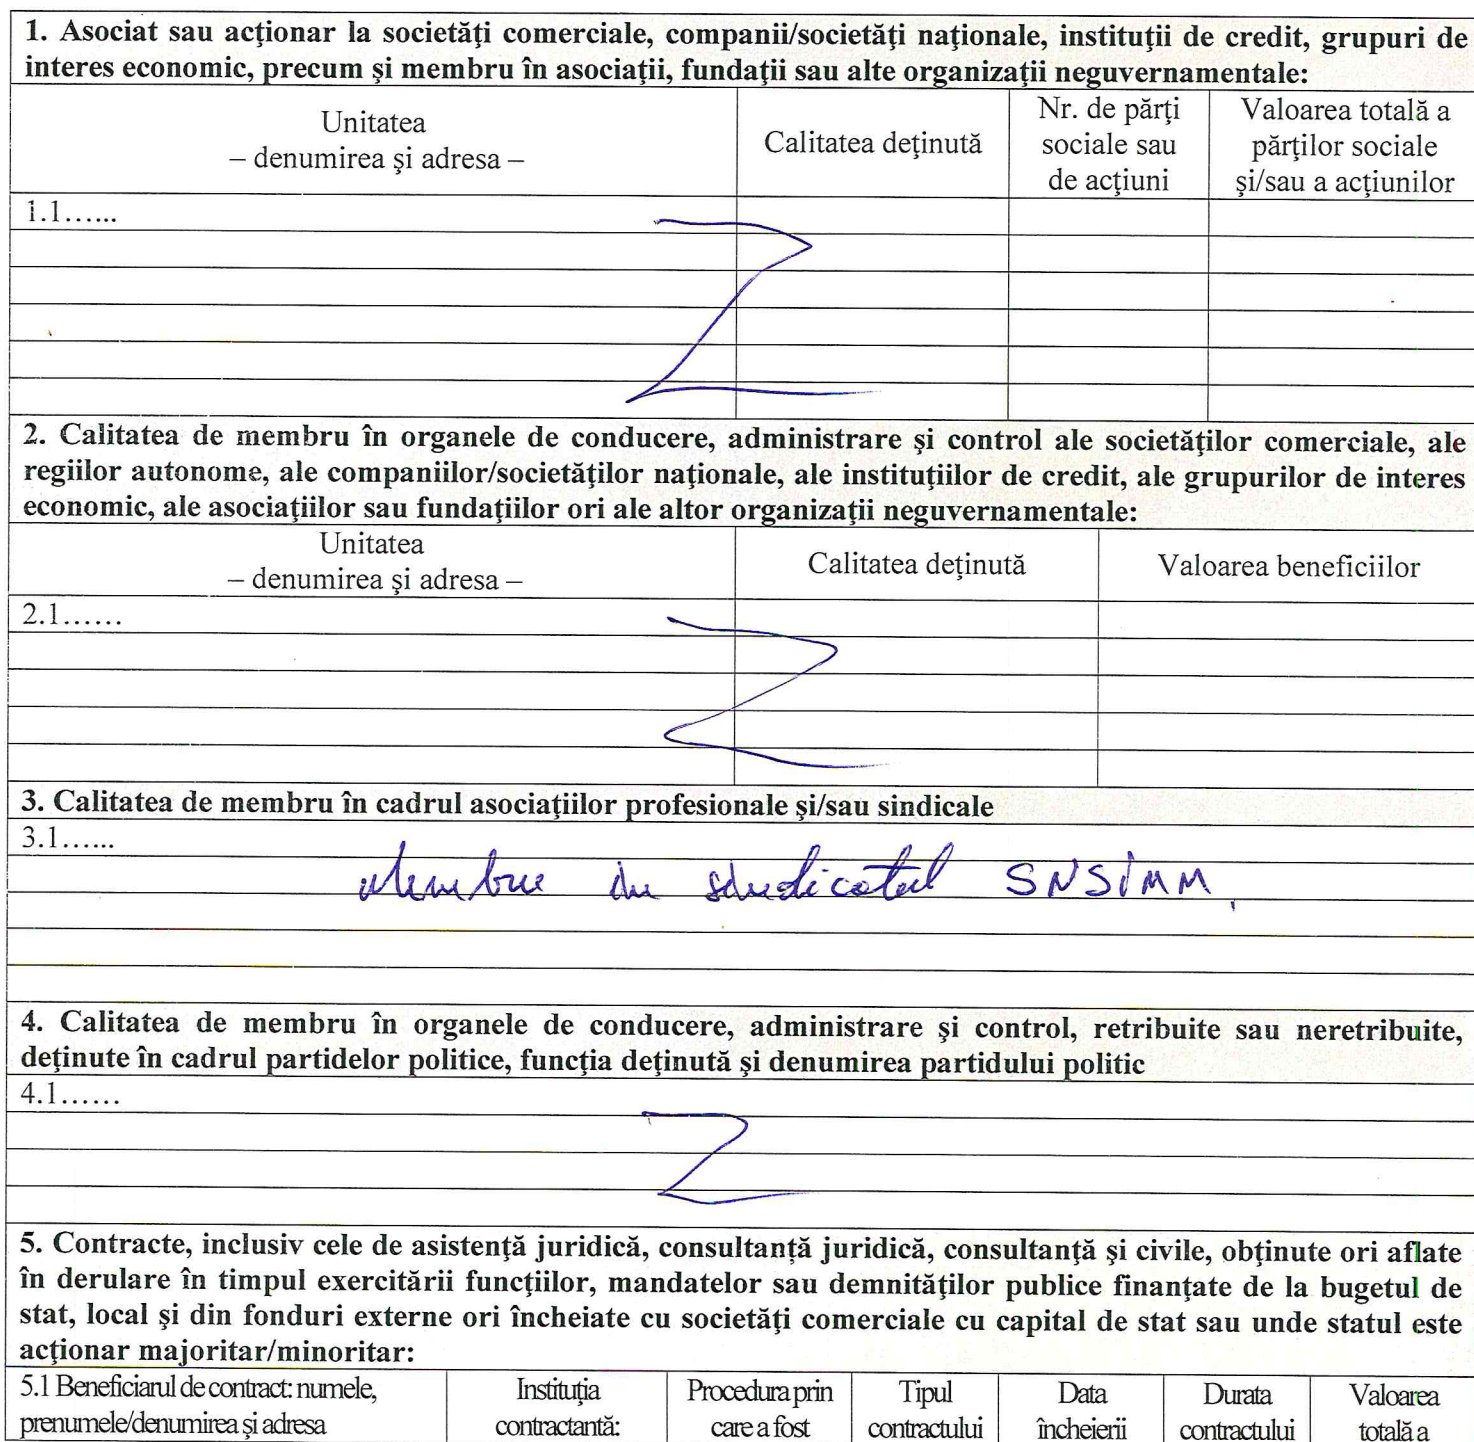 1. Asociat sau acţionar la societăţi comerciale, companii/societăţi naţionale, instituţii de credit, grupuri de
interes economic, precum şi membru în asociaţii, fundaţii sau alte organizaţii neguvernamentale:
Unitatea
– denumirea şi adresa –
Calitatea deţinută
Nr. de părţi
sociale sau
de acţiuni
Valoarea totală a
părţilor sociale
şi/sau a acţiunilor
1.1......
2. Calitatea de membru în organele de conducere, administrare şi control ale societăţilor comerciale, ale
regiilor autonome, ale companiilor/societăţilor naţionale, ale instituţiilor de credit, ale grupurilor de interes
economic, ale asociaţiilor sau fundaţiilor ori ale altor organizaţii neguvernamentale:
Unitatea
– denumirea şi adresa –
Calitatea deţinută
Valoarea beneficiilor
2.1......
3. Calitatea de membru în cadrul asociaţiilor profesionale şi/sau sindicale
3.1......
Membru în sindicatul SNSIMM
4. Calitatea de membru în organele de conducere, administrare şi control, retribuite sau neretribuite,
deţinute în cadrul partidelor politice, funcţia deţinută şi denumirea partidului politic
4.1......
5. Contracte, inclusiv cele de asistenţă juridică, consultanţă juridică, consultanţă şi civile, obţinute ori aflate
în derulare în timpul exercitării funcţiilor, mandatelor sau demnităţilor publice finanţate de la bugetul de
stat, local şi din fonduri externe ori încheiate cu societăţi comerciale cu capital de stat sau unde statul este
acţionar majoritar/minoritar:
5.1 Beneficiarul de contract: numele,
prenumele/denumirea şi adresa
Instituţia
contractantă:
Procedura prin
care a fost
Tipul
contractului
Data
încheierii
Durata
contractului
Valoarea
totală a